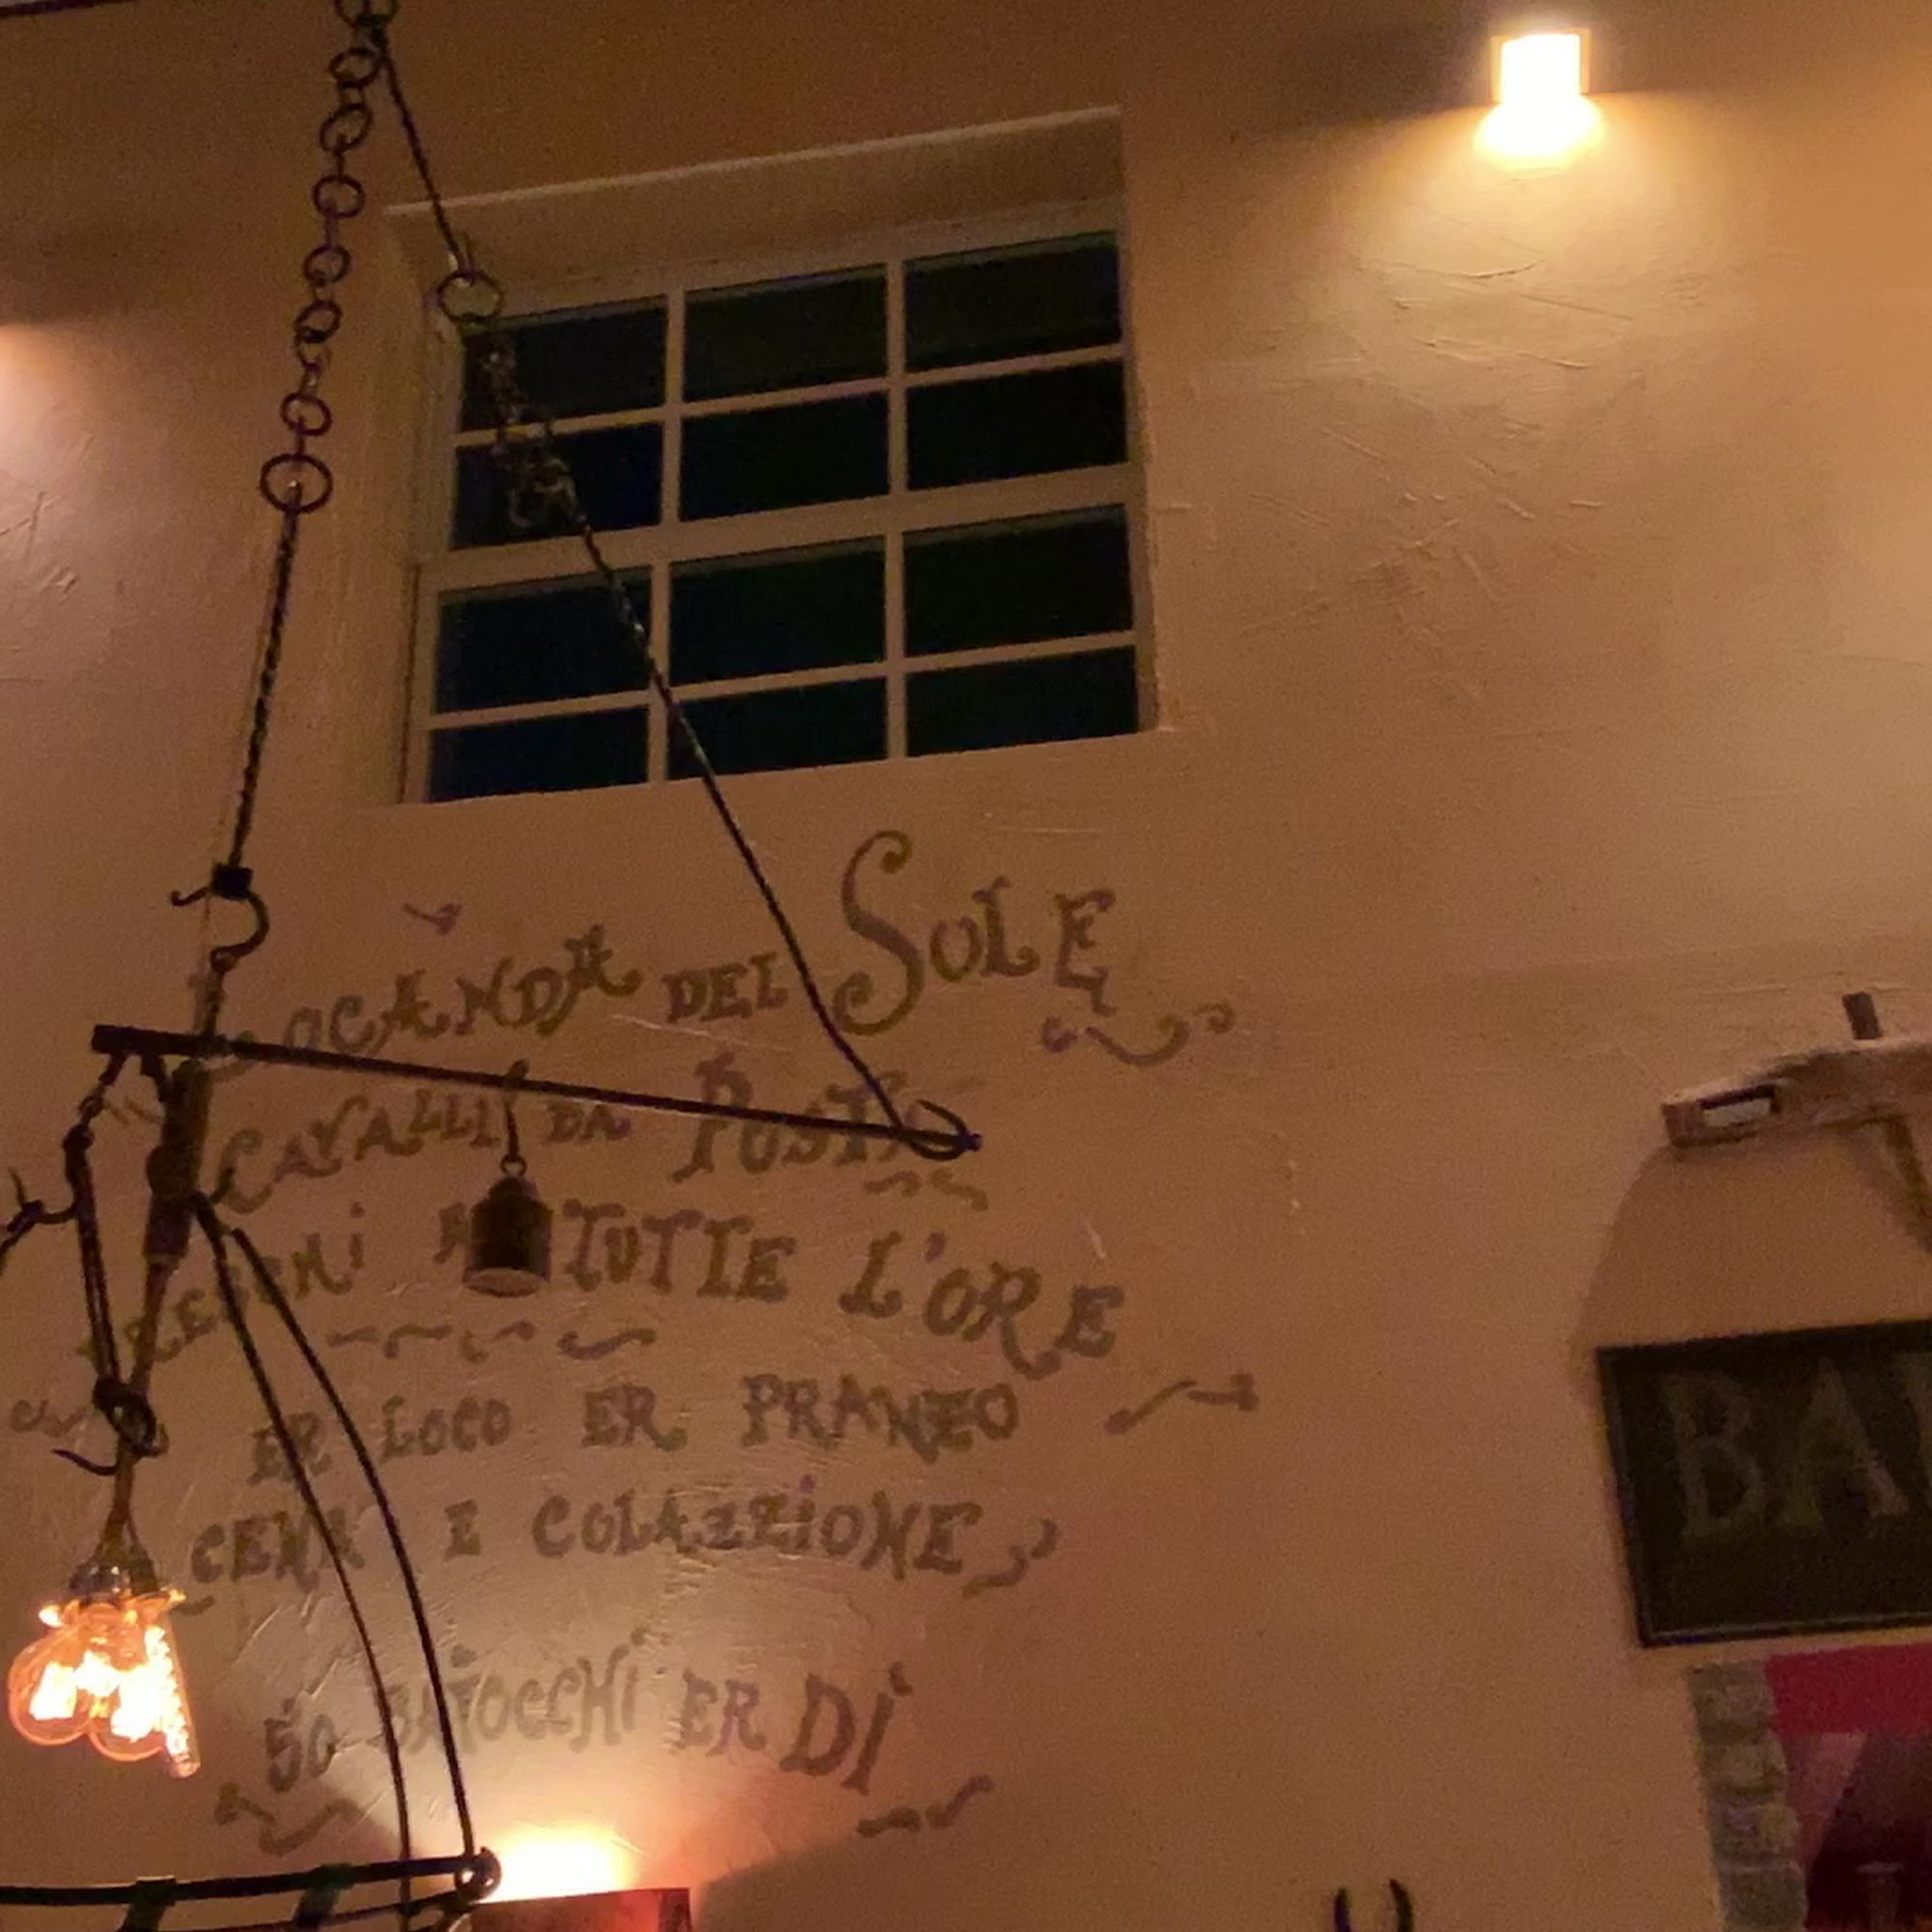 LOCANDA DEL SOLE
CAVALLI DA POSTA
FRESCHI A TUTTE L'ORE
ER LOCO ER PRANZO
CENA E COLAZZIONE
50 BAIOCCHI ER DÌ
BA